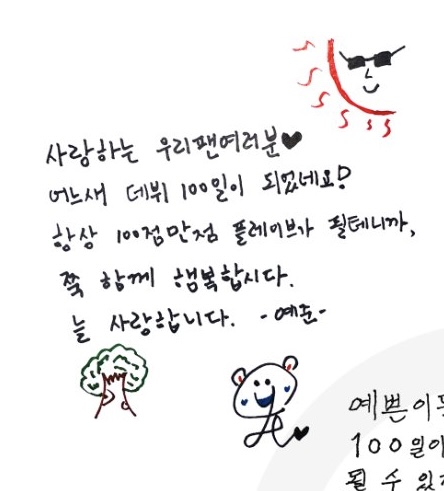 사랑하는 우리팬여러분♥
어느새 데뷔 100일이 되었네요!
항상 100점만점 플레이브가 될테니까,
쭉 함께 행복합시다.
늘 사랑합니다. -예준-
예쁜이
100일이
될 수 있